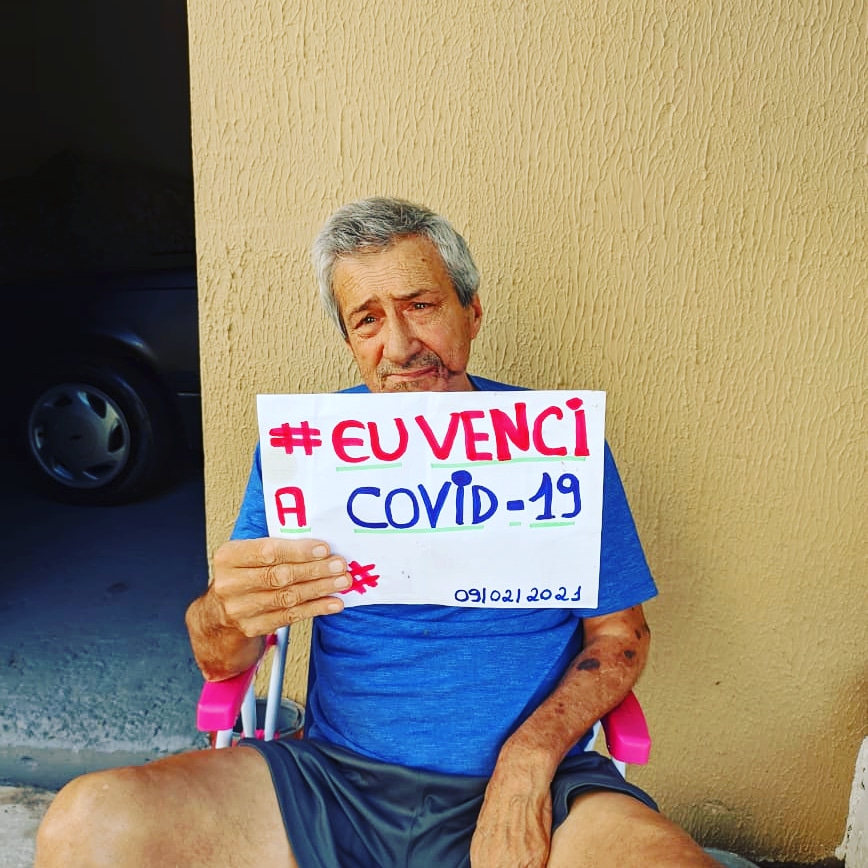 #EU VENCI
A COVID-19
#
09/02/2021